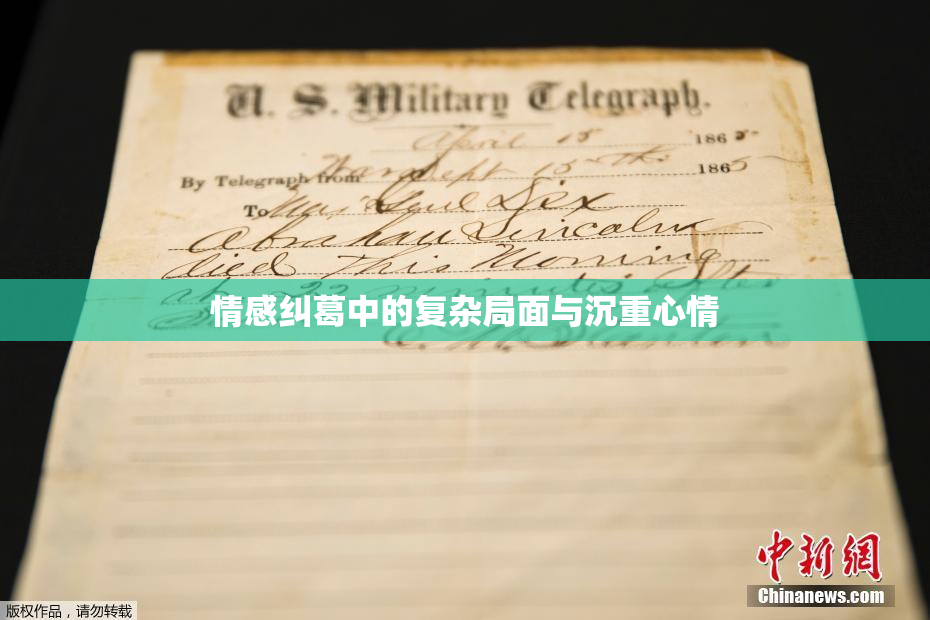 U. S. Military Telegraph.
April 15 1865
By Telegraph from War Dept 15th 1865
To Maj Genl Dix
Abraham Lincoln
died This Morning
at 22 minutes after
情感纠葛中的复杂局面与沉重心情
E. M. Stanton
中新網
Chinanews.com
版权作品，请勿转载